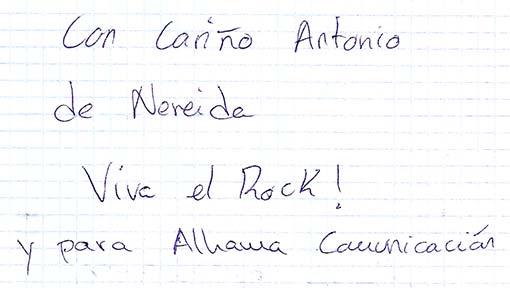 Con Cariño Antonio
de Nereida
Viva el Rock!
y para Alhama Comunicación